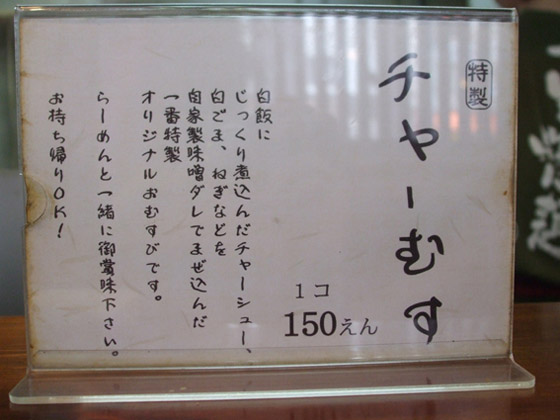 特製
チャーむす
1コ
150えん
白飯に
じっくり煮込んだチャーシュー、
白ごま、ねぎなどを
自家製味噌ダレでまぜ込んだ
一番特製
オリジナルおむすびです。
らーめんと一緒に御賞味下さい。
お持ち帰りOK!